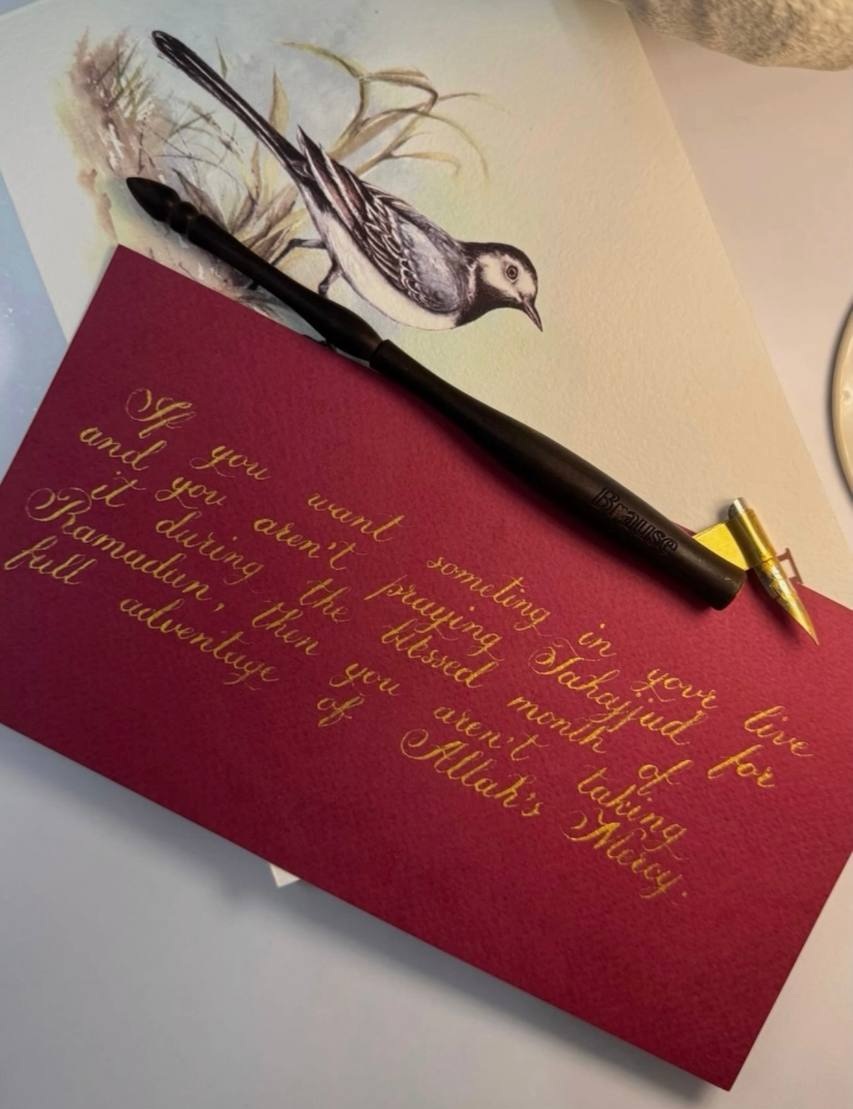 Brause
If you want someting in your live
and you aren't praying Tahajjud for
it during the blessed month of
Ramadan, then you aren't taking
full adventage of Allah's Mercy.